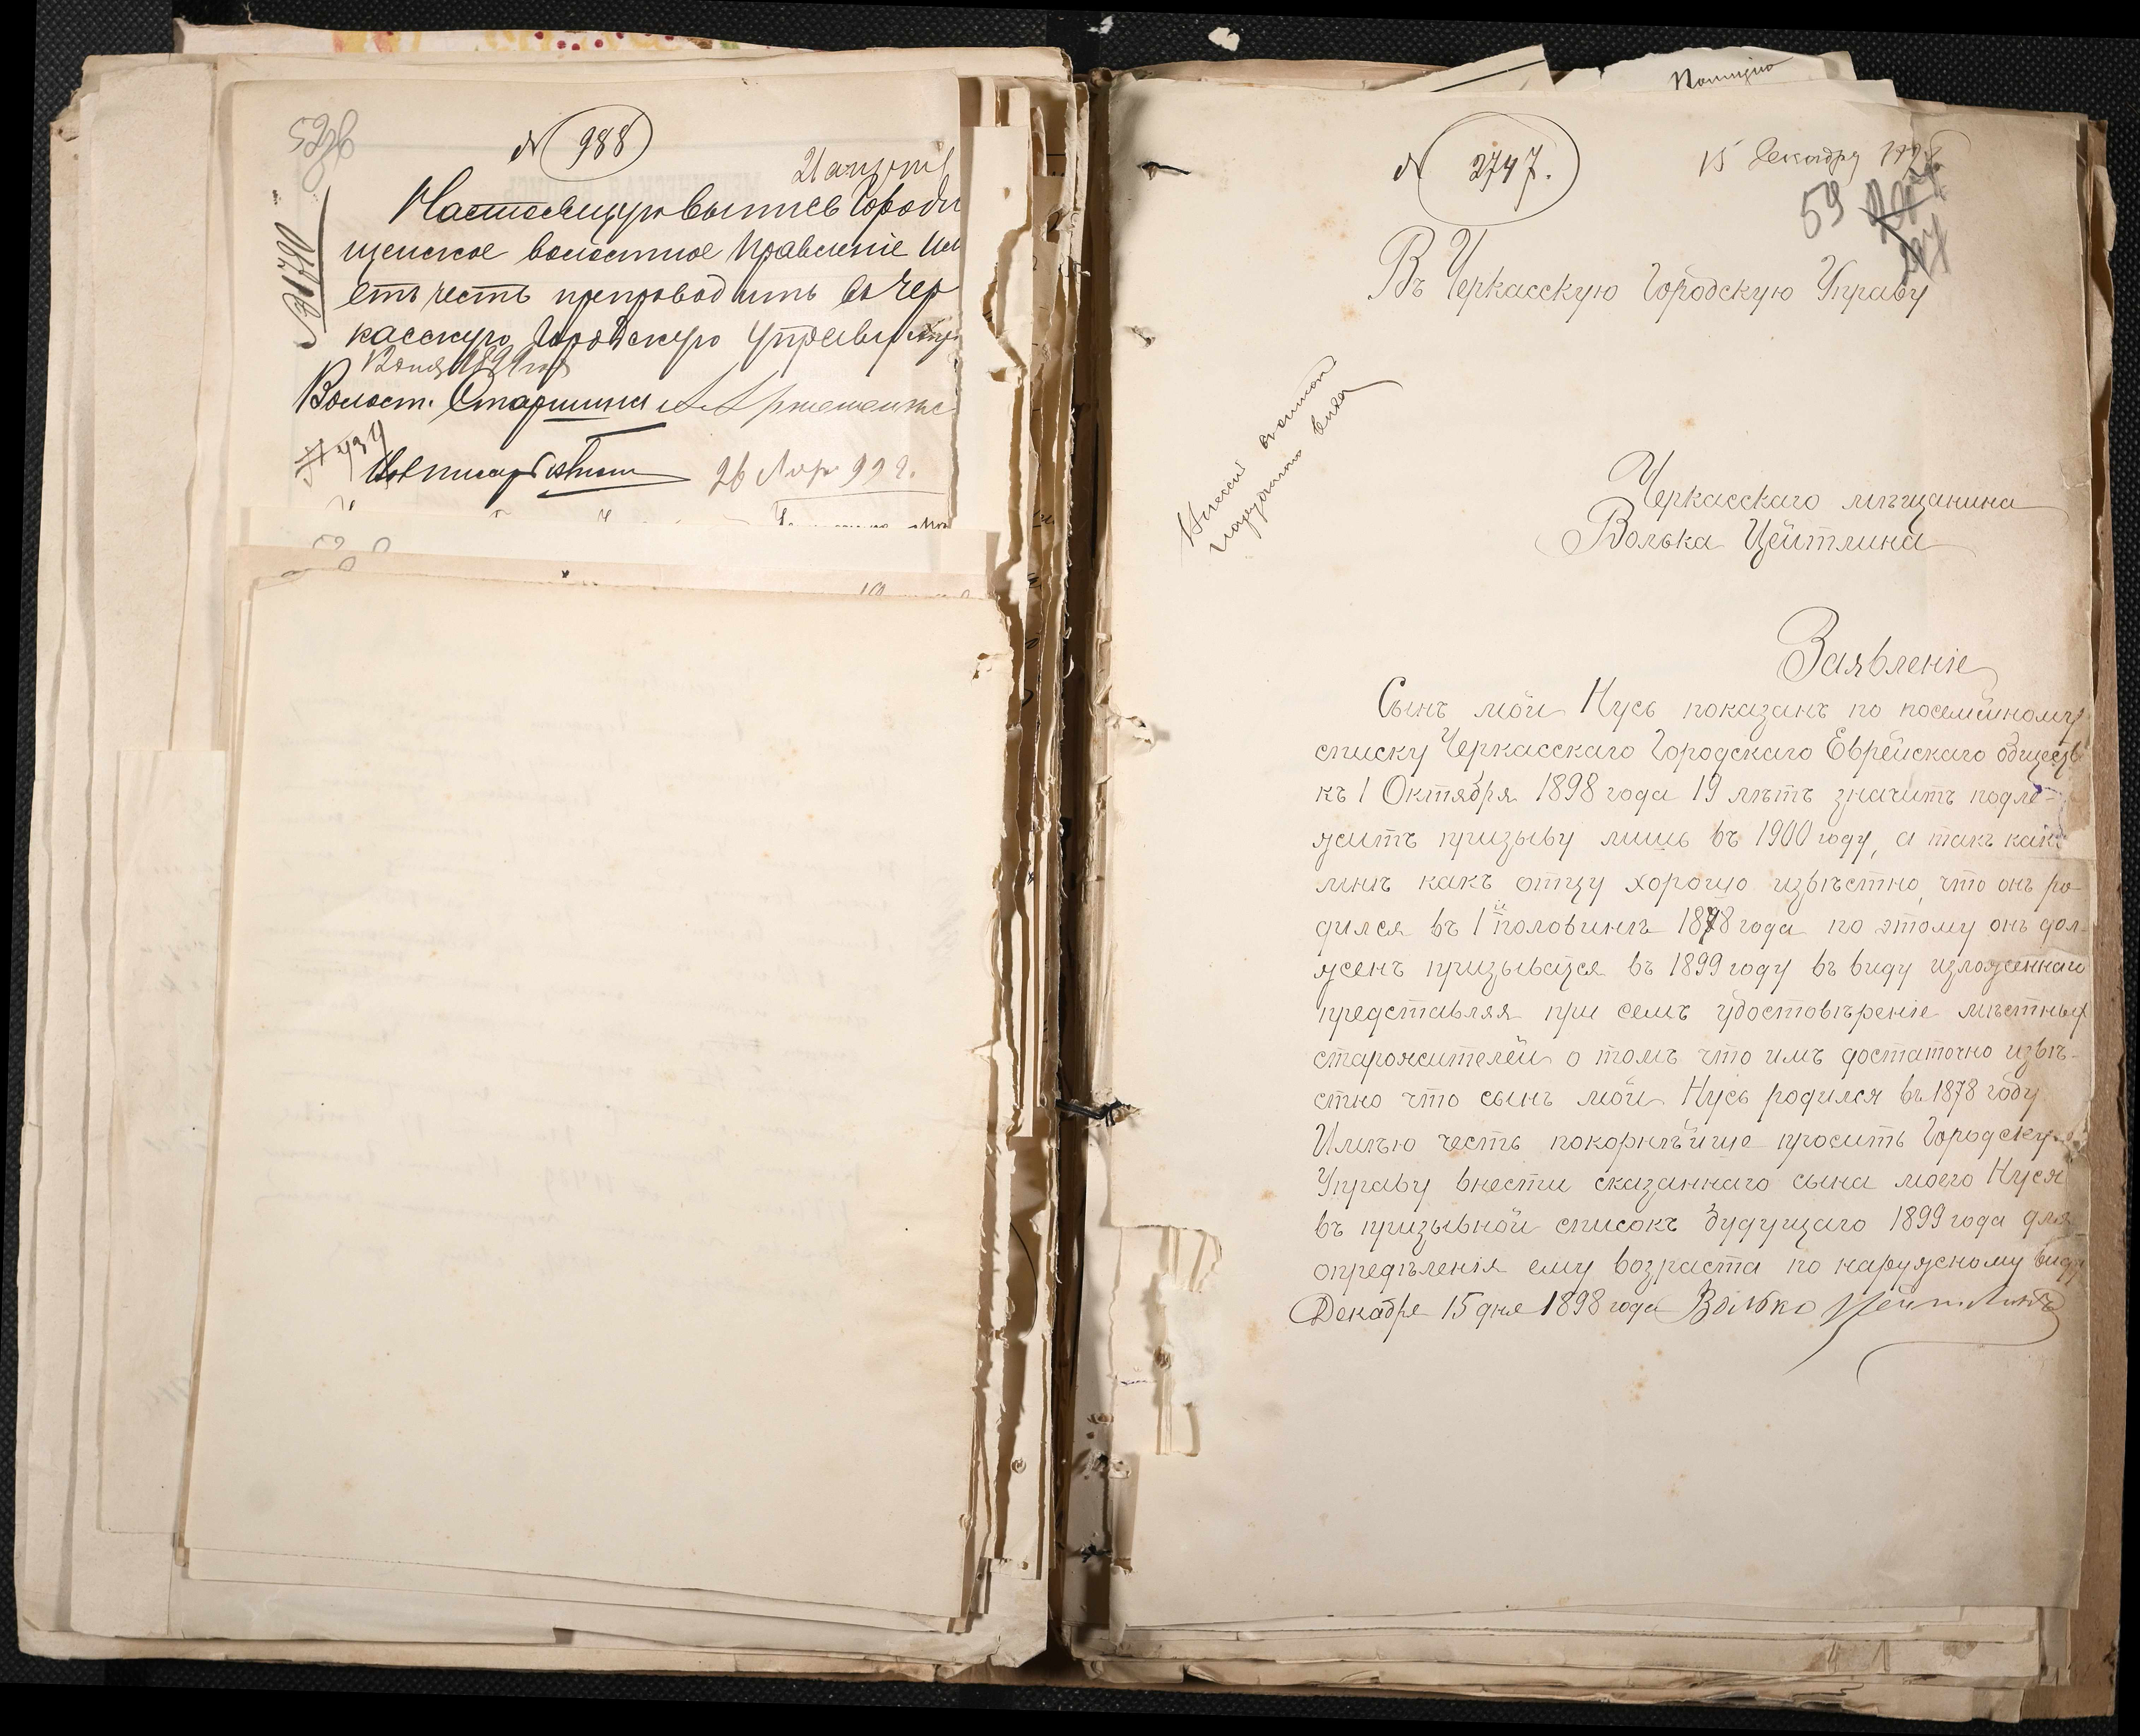 № 988
Настоящую выпись Городи
щенское волостное Правленіе им
етъ честь препроводить въ Чер
касскую Городскую Управу
Волост. Старшина
№ 1790
26 Апр 99 г.
№ 2747.
15 Декабря 1898
59
Въ Черкасскую Городскую Управу
наружнаго вида
Черкасскаго мѣщанина
Волька Цейтлина
Заявленіе
Сынъ мой Нусь показанъ по посемейному
списку Черкасскаго Городскаго Еврейскаго обществ
къ 1 Октября 1898 года 19 лѣтъ значитъ подле-
житъ призыву лишь въ 1900 году, а такъ какъ
мнѣ какъ отцу хорошо извѣстно, что онъ ро
дился въ 1й половинѣ 1878 года по этому онъ дол-
женъ призыватся въ 1899 году въ виду изложеннаго
представляя при семъ удостовѣреніе мѣстных
старожителей о томъ что имъ достаточно извѣ-
стно что сынъ мой Нусь родился въ 1878 году
Имѣю честь покорнѣйше просить Городскую
Управу внести сказаннаго сына моего Нуся
въ призывной списокъ будущаго 1899 года для
опредѣленія ему возраста по наружному виду
Декабре 15 дня 1898 года Волько Цейтлинъ